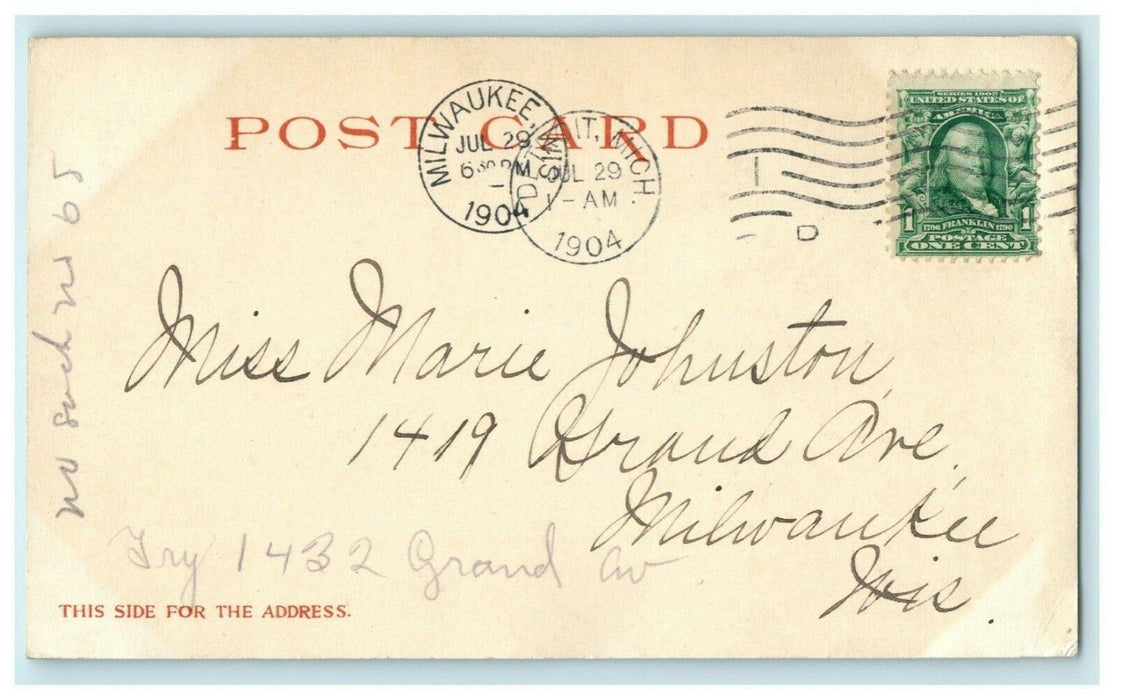 POST CARD
MILWAUKEE, WIS.
JUL 29
6 30 PM
1904
DETROIT, MICH
JUL 29
1 - AM
1904
D
SERIES 1902
UNITED STATES OF
AMERICA
1
1
1706 FRANKLIN 1790
POSTAGE
ONE CENT
Miss Marie Johnston
1419 Grand Ave.
Milwaukee
Wis.
no such no 65
Try 1432 Grand av.
THIS SIDE FOR THE ADDRESS.